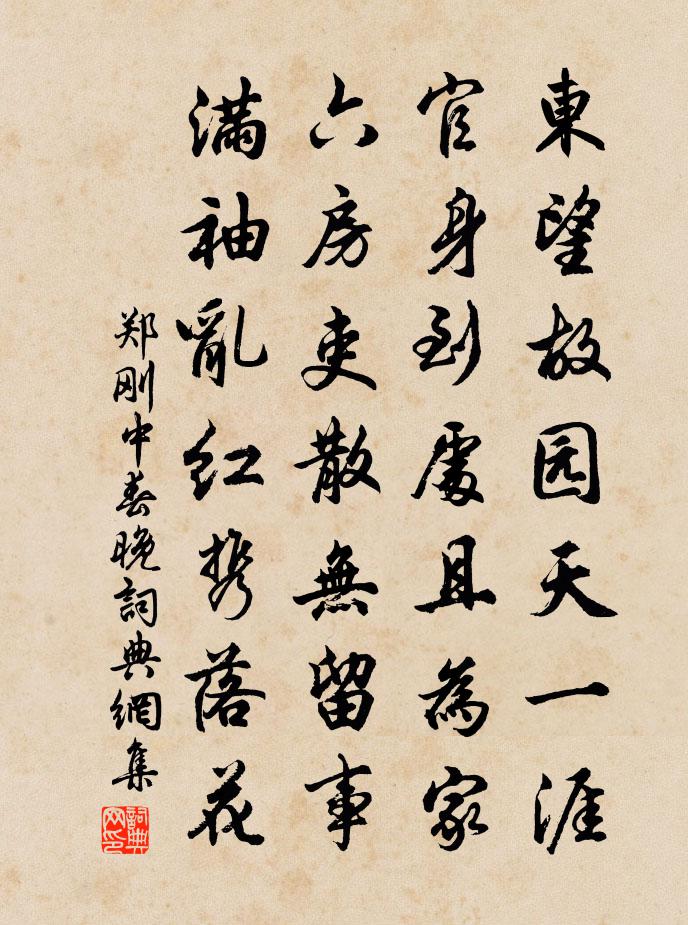 東望故园天一涯
官身到處且為家
六房吏散無留事
滿袖亂红携落花
郑刚中春晚詞典網集
詞典网印